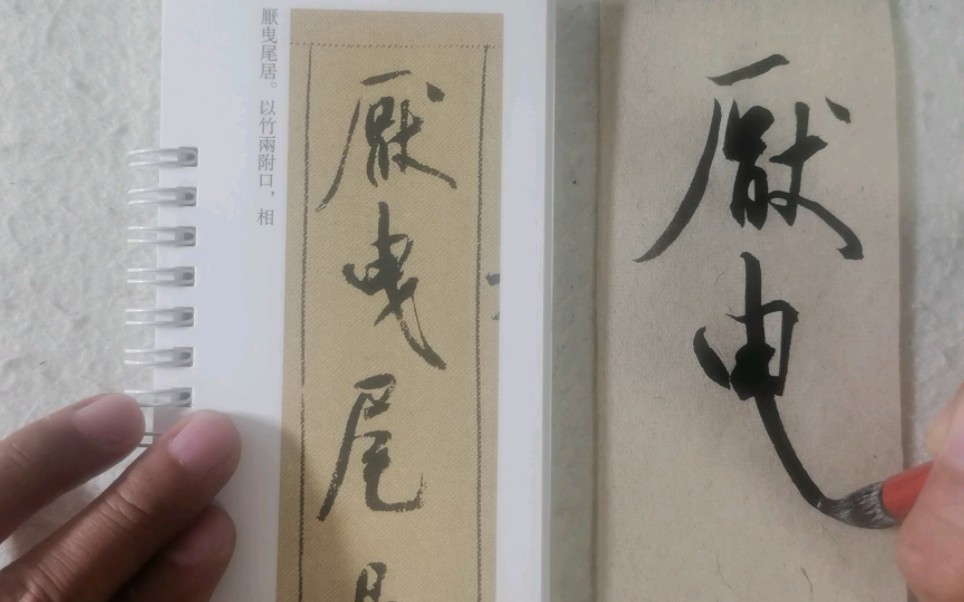 厭曳尾居。以竹兩附口，相
厭曳尾
厭曳